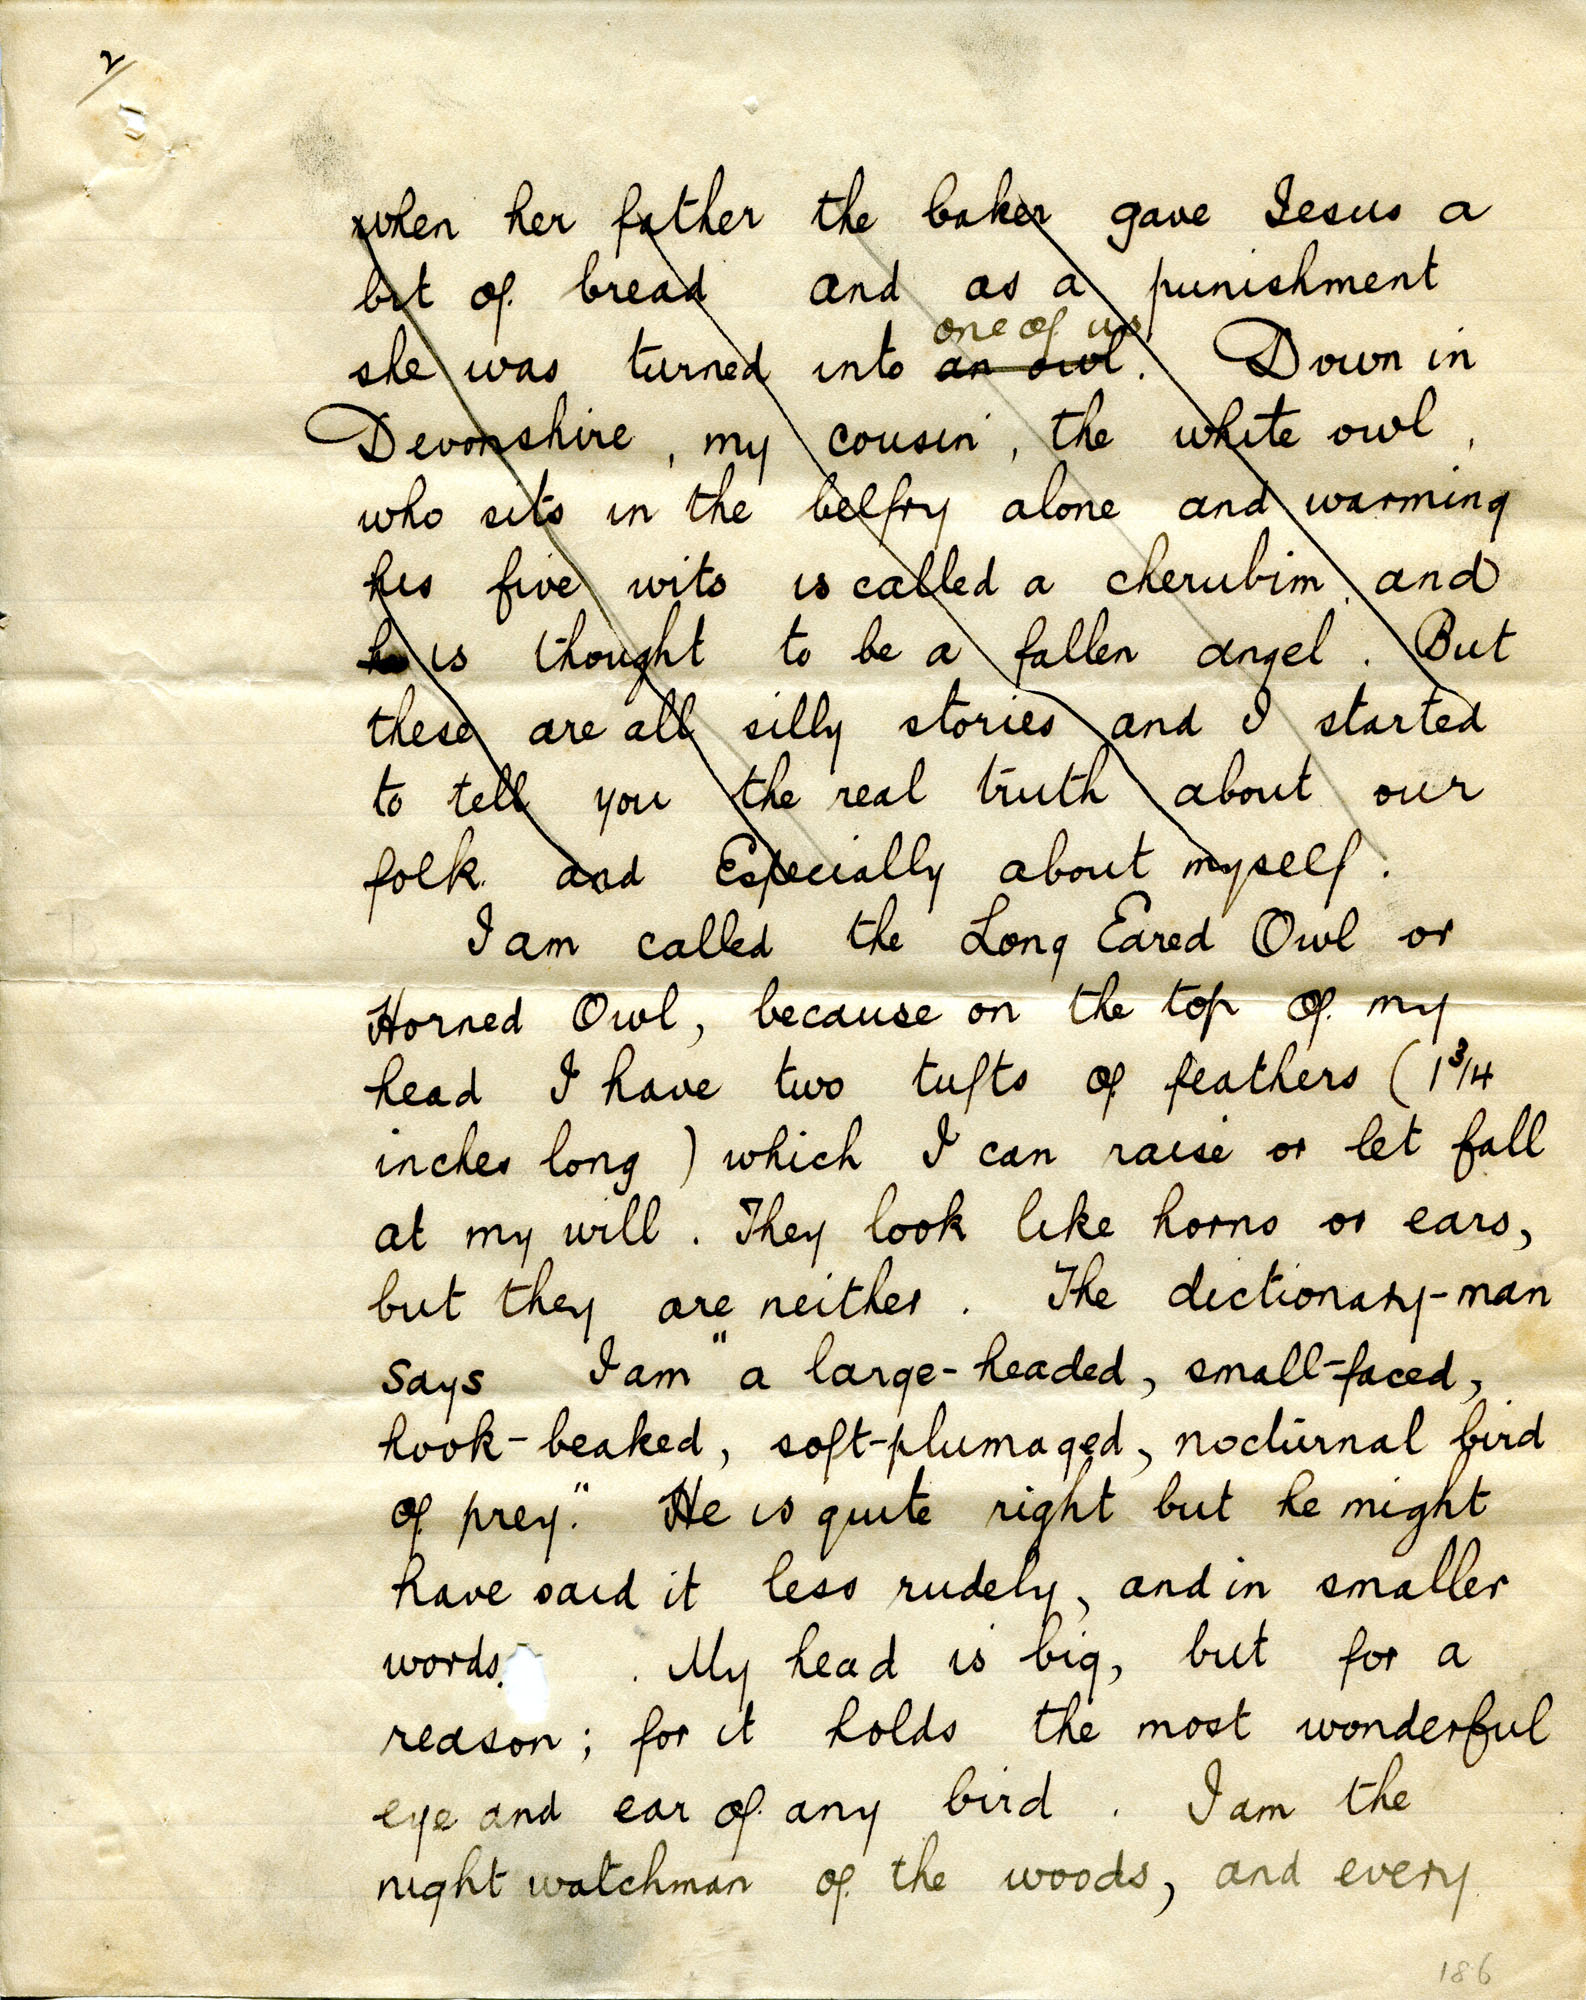 2/
when her father the baker gave Jesus a
bit of bread and as a punishment
one of us
she was turned into an owl. Down in
Devonshire, my cousin, the white owl,
who sits in the belfry alone and warming
his five wits is called a cherubim and
he is thought to be a fallen angel. But
these are all silly stories and I started
to tell you the real truth about our
folk and Especially about myself.
I am called the Long Eared Owl or
Horned Owl, because on the top of my
head I have two tufts of feathers (1 3/4
inches long) which I can raise or let fall
at my will. They look like horns or ears,
but they are neither. The dictionary-man
says I am "a large-headed, small-faced,
hook-beaked, soft-plumaged, nocturnal bird
of prey." He is quite right but he might
have said it less rudely, and in smaller
words. . My head is big, but for a
reason; for it holds the most wonderful
eye and ear of any bird. I am the
night watchman of the woods, and every
186